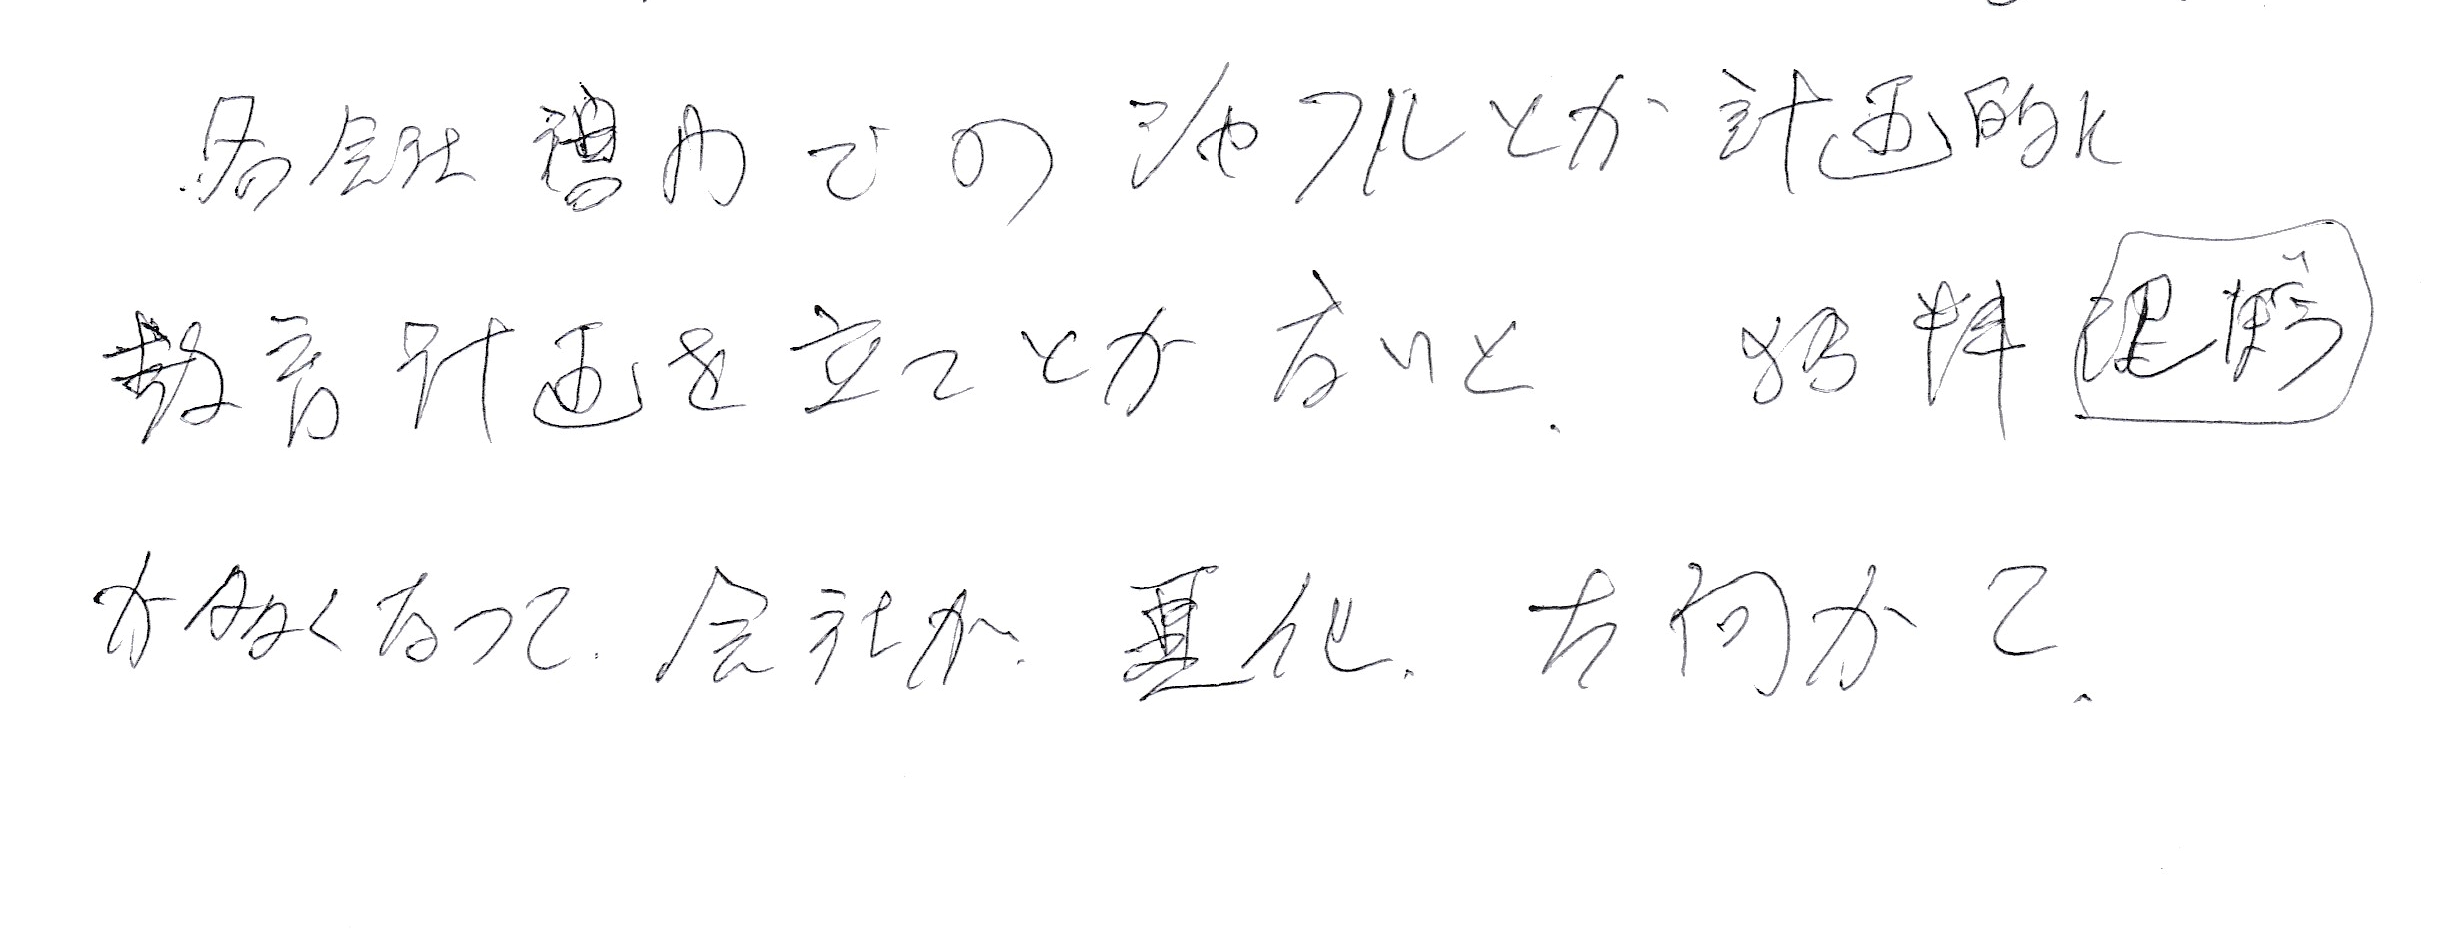 会社 内でのシャフルとか計画的に
教育計画を立てとかないと. 給料
が なくなって. 会社が. 悪化. 方向がて.